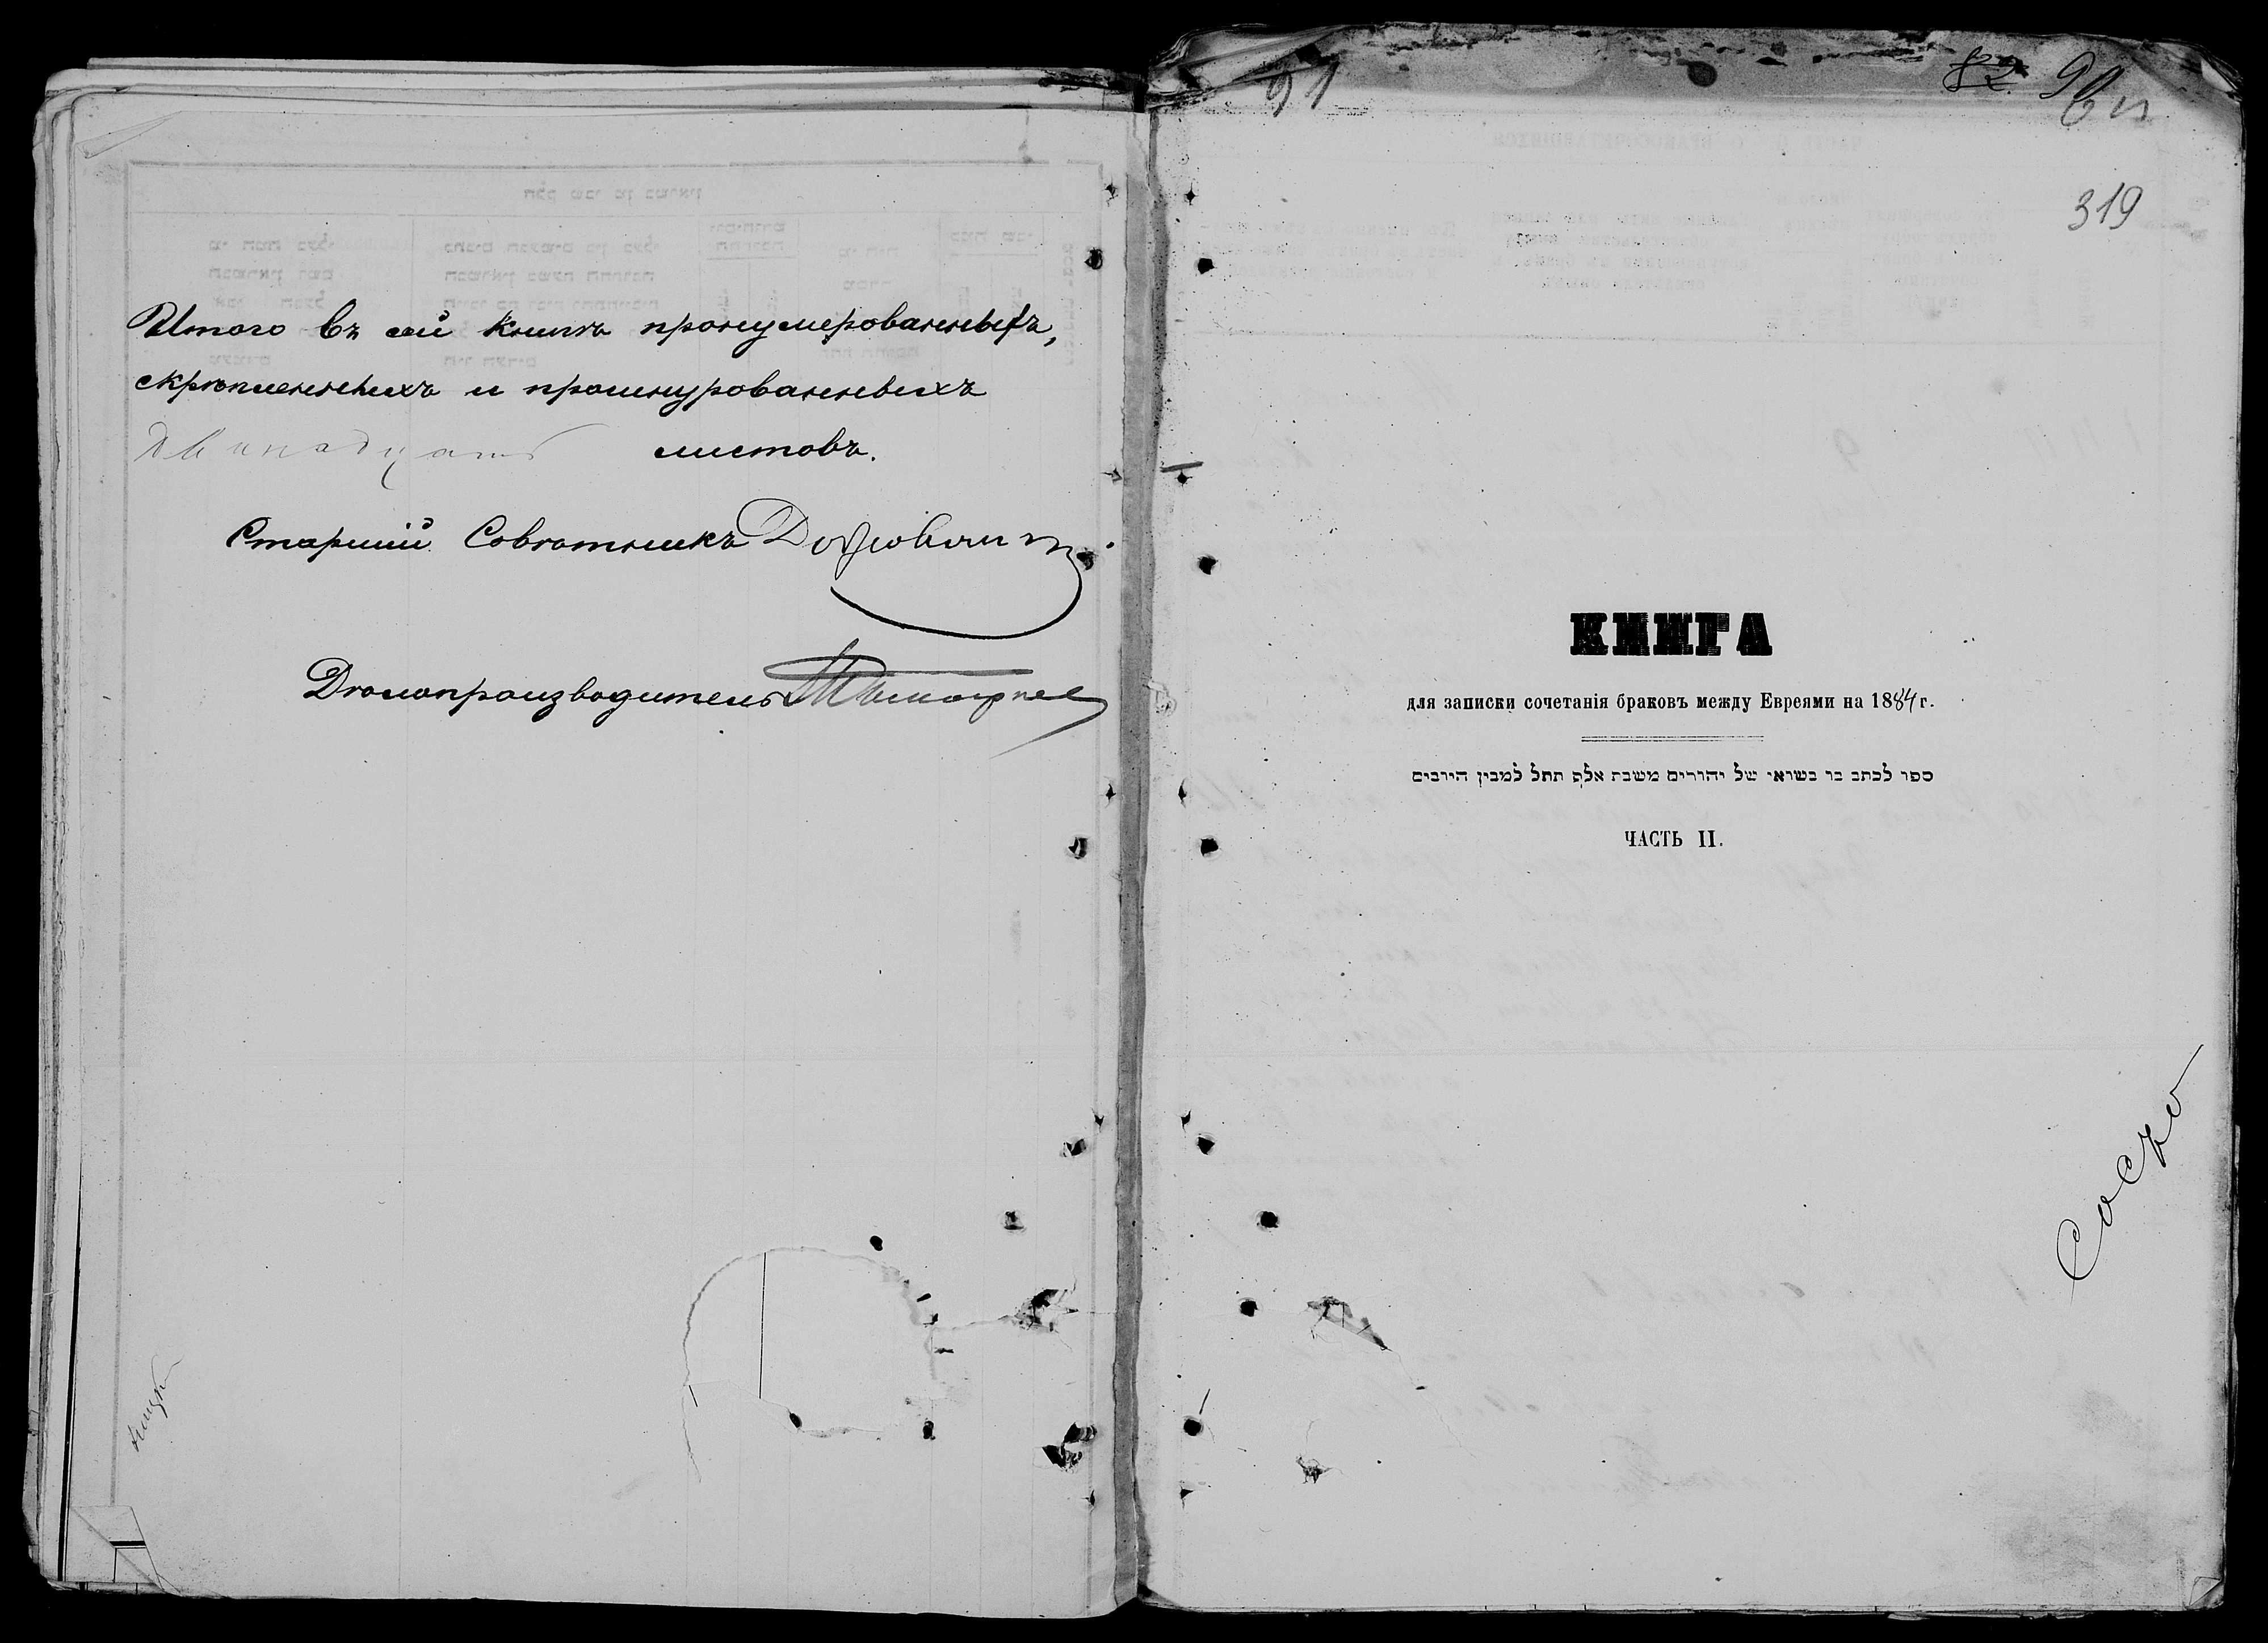 Итого въ сей книгѣ пронумерованныхъ,
скрѣпленныхъ и прошнурованныхъ
двѣнадцать листовъ.
Старшій Совѣтникъ
Дѣлопроизводитель
91
82 90
319
КНИГА
для записки сочетанія браковъ между Евреями на 1884 г.
ספר לכתב בו נשואי של יהודים משנת אלף תתל למנין היונים
ЧАСТЬ II.